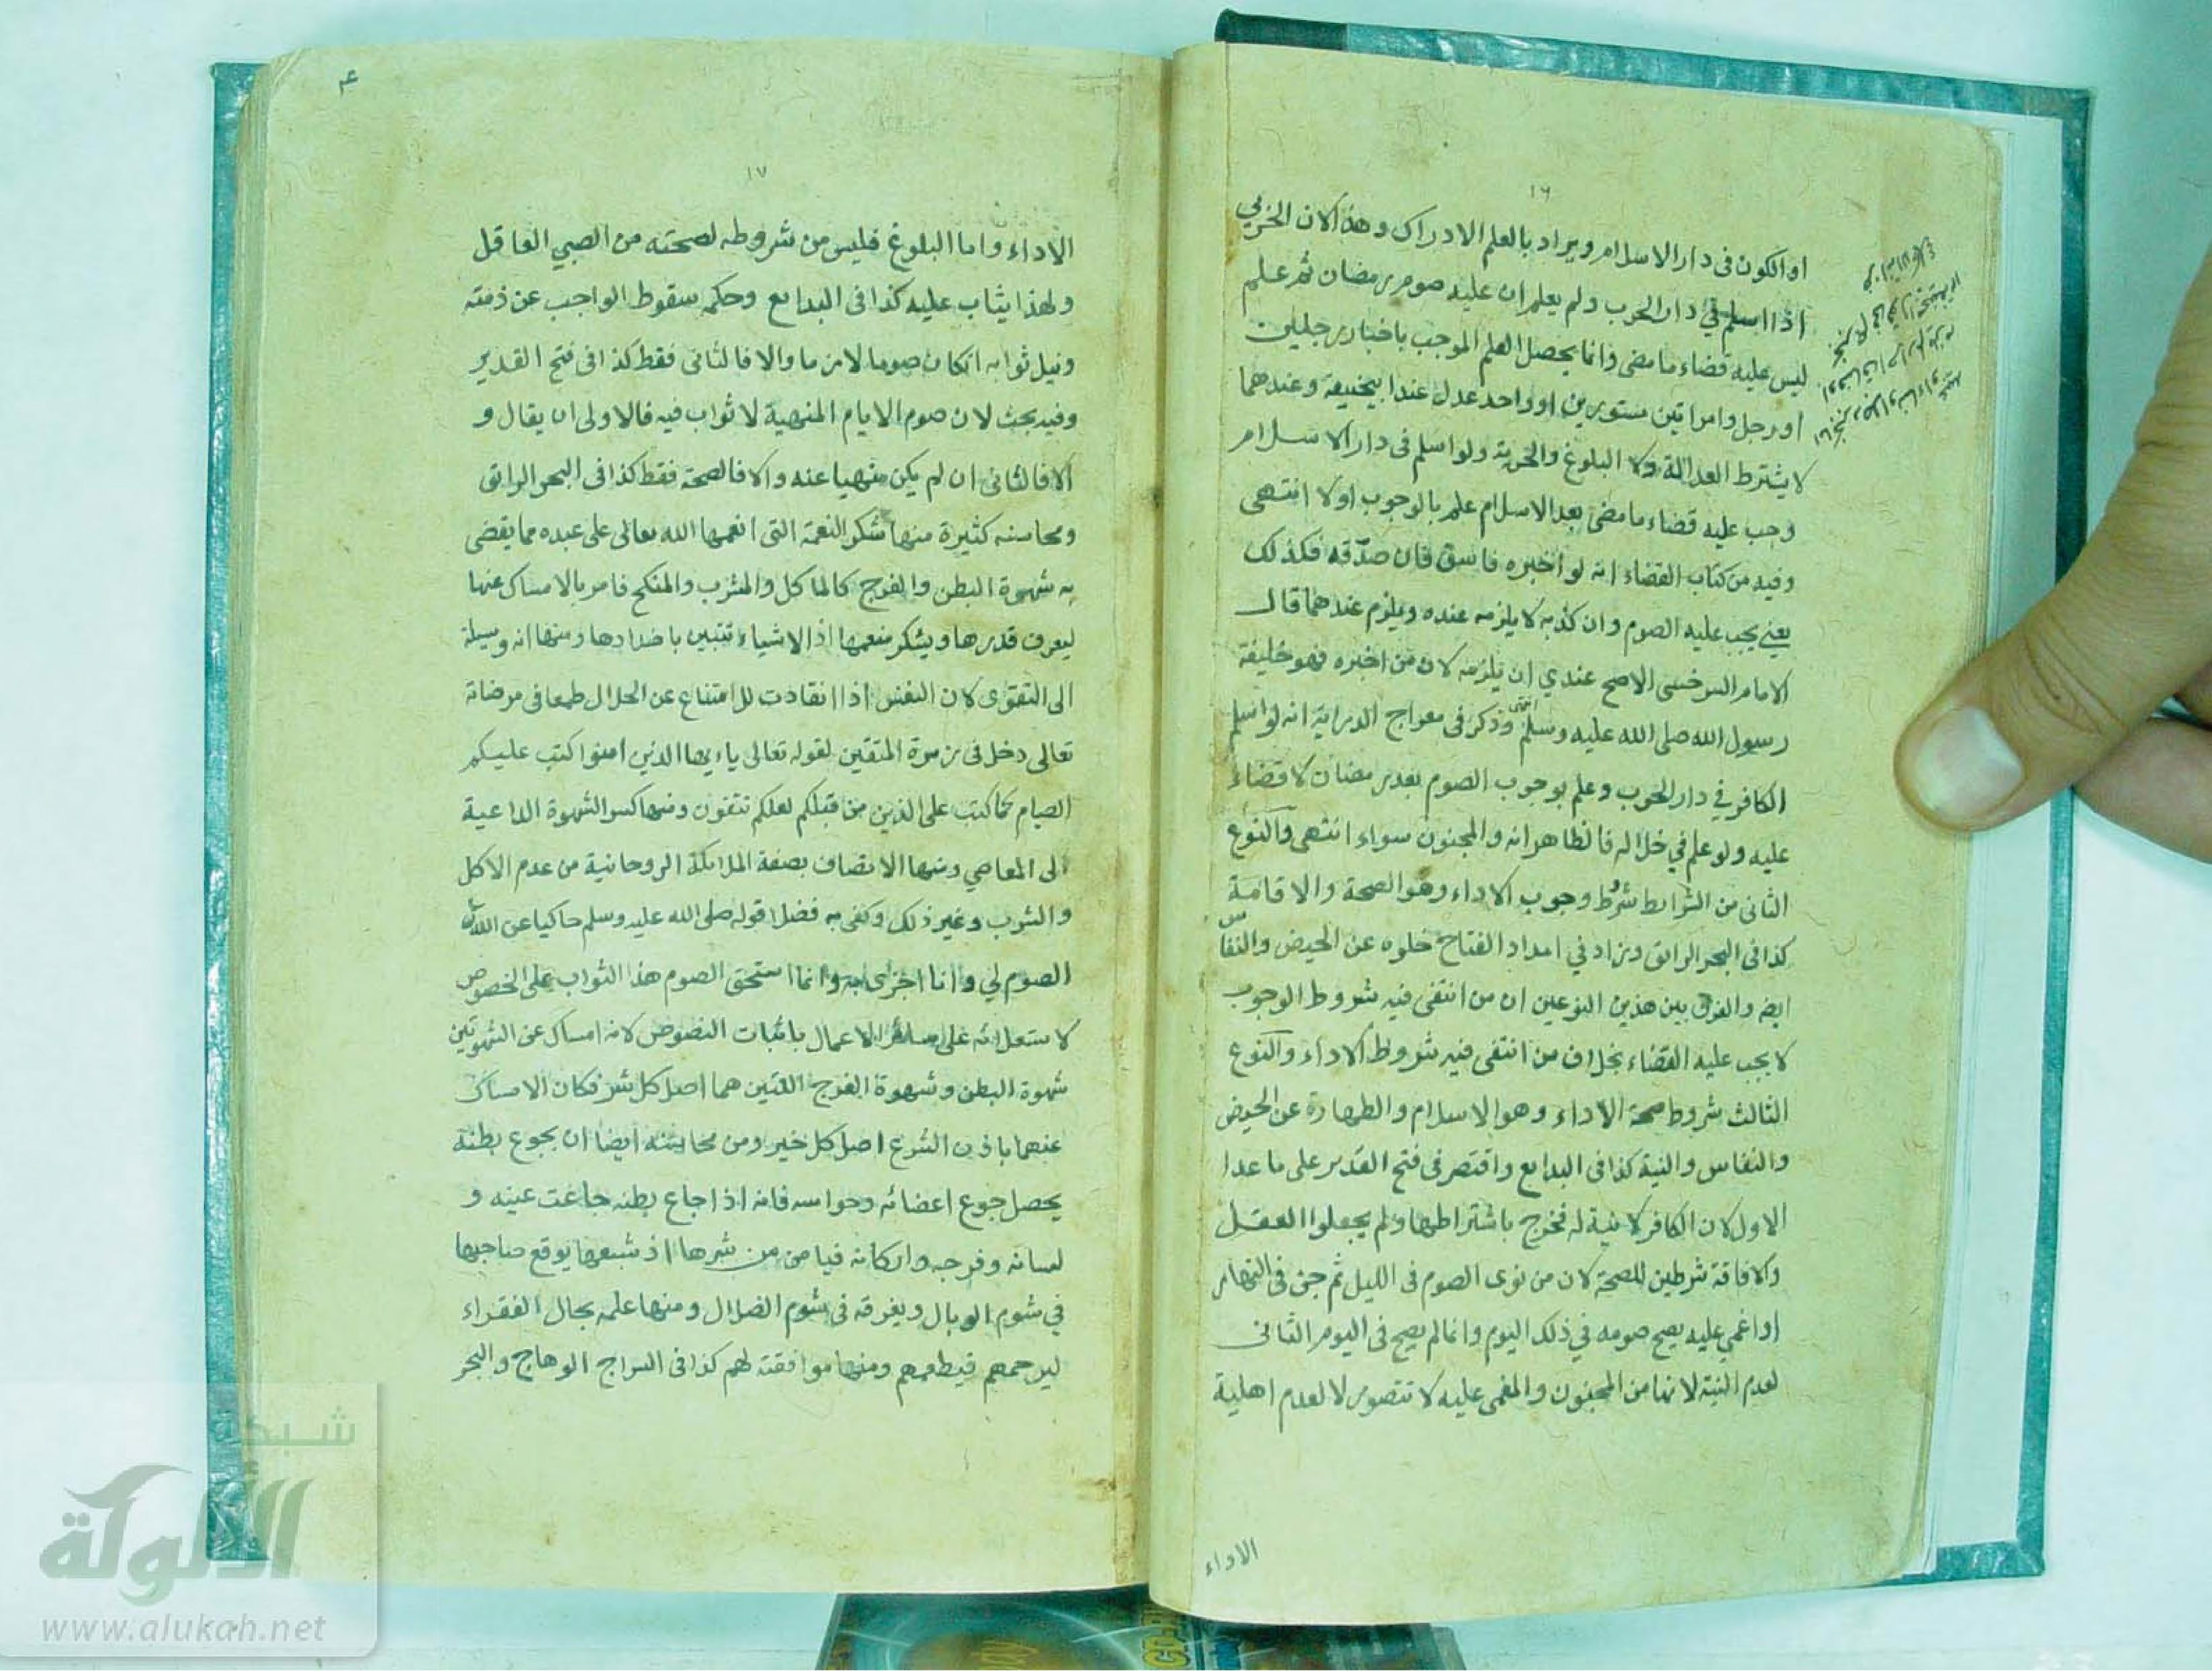 ١٦
او الكون فى دار الاسلام ويراد بالعلم الادراك وهذا لان الحربي
اذا اسلم في دار الحرب ولم يعلم ان عليه صوم رمضان ثم علم
ليس عليه قضاء ما مضى وانما يحصل العلم الموجب باخبار رجلين
او رجل وامراتين مستورين او واحد عدل عند ابيحنيفة وعندهما
لا يشترط العدالة ولا البلوغ والحرية ولو اسلم فى دار الاسلام
وجب عليه قضاء ما مضى بعد الاسلام علم بالوجوب اولا انتهى
وفيه من كتاب القضاء انه لو اخبره فاسق فان صدّقه فكذلك
يعني يجب عليه الصوم وان كذبه لا يلزمه عنده ويلزم عندهما قال
الامام السرخسى الاصح عندي ان يلزمه لان من اخبره فهو خليفة
رسول الله صلى الله عليه وسلم انتهى وذكر فى معراج الدراية انه لو اسلم
الكافر في دار الحرب وعلم بوجوب الصوم بعد رمضان لا قضاء
عليه ولو علم في خلاله فالظاهر انه والمجنون سواء انتهى والنوع
الثانى من الشرايط شرط وجوب الاداء وهو الصحة والاقامة
كذا فى البحر الرائق وزاد في امداد الفتاح خلوه عن الحيض والنفاس
ايض والفرق بين هذين النوعين ان من انتفى فيه شروط الوجوب
لا يجب عليه القضاء بخلاف من انتفى فيه شروط الاداء والنوع
الثالث شروط صحة الاداء وهو الاسلام والطهارة عن الحيض
والنفاس والنية كذا فى البدايع واقتصر فى فتح القدير على ما عدا
الاول لان الكافر لا نية له فخرج باشتراطها ولم يجعلوا العقل
والافاقة شرطين للصحة لان من نوى الصوم فى الليل ثم جن فى النهار
او اغمي عليه يصح صومه في ذلك اليوم وانما لم يصح فى اليوم الثانى
لعدم النية لانها من المجنون والمغمى عليه لا تتصور لا لعدم اهلية
الاداء
١٧
الاداء واما البلوغ فليس من شروطه لصحته من الصبي العاقل
ولهذا يثاب عليه كذا فى البدايع وحكمه سقوط الواجب عن ذمته
ونيل ثوابه انكان صوما لازما والا فالثانى فقط كذا فى فتح القدير
وفيه بحث لان صوم الايام المنهية لا ثواب فيه فالاولى ان يقال و
الا فالثانى ان لم يكن منهيا عنه والا فالصحة فقط كذا فى البحر الرائق
ومحاسنه كثيرة منها شكر النعمة التى انعمها الله تعالى على عبده مما يقضى
به شهوة البطن والفرج كالماكل والمشرب والمنكح فامر بالامساك عنها
ليعرف قدرها ويشكر منعمها اذ الاشياء تتبين باضدادها ومنها انه وسيلة
الى التقوى لان النفس اذا انقادت للامتناع عن الحلال طمعا فى مرضاته
تعالى دخل فى زمرة المتقين لقوله تعالى ياءيها الذين امنوا كتب عليكم
الصيام كما كتب على الذين من قبلكم لعلكم تتقون ومنها كسر الشهوة الداعية
الى المعاصي ومنها الاتصاف بصفة الملائكة الروحانية من عدم الاكل
والشرب وغير ذلك وكفى به فضلا قوله صلى الله عليه وسلم حاكيا عن الله تع
الصوم لي وانا اجزى به وانما استحق الصوم هذا الثواب على الخصوص
لاستعلائه على سائر الاعمال باثبات النصوص لانه امساك عن الشهوتين
شهوة البطن وشهوة الفرج اللتين هما اصل كل شر فكان الامساك
عنهما باذن الشرع اصل كل خير ومن محاسنه ايضا ان بجوع بطنه
يحصل جوع اعضائه وحواسه فانه اذا جاع بطنه جاعت عينه و
لسانه وفرجه واركانه فيامن من شرها اذ شبعها يوقع صاحبها
في شوم الوبال ويغرقه فى شوم الضلال ومنها علمه بحال الفقراء
ليرحمهم فيطعمهم ومنها موافقته لهم كذا فى السراج الوهاج والبحر
شبكة
الألوكة
www.alukah.net